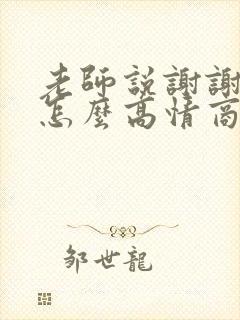 老師説謝謝
怎麼高情商
邹世龍